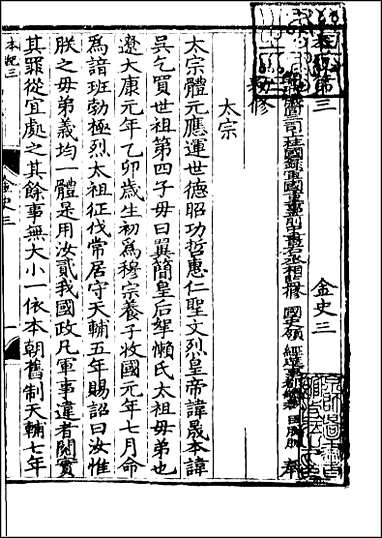 本紀第三　金史三
勅修
太宗
太宗體元應運世德昭功哲惠仁聖文烈皇帝諱晟本諱
吳乞買世祖第四子母曰翼簡皇后拏懶氏太祖母弟也
遼大康元年乙卯歲生初為穆宗養子收國元年七月命
為諳班勃極烈太祖征伐常居守天輔五年賜詔曰汝惟
朕之母弟義均一體是用汝貳我國政凡軍事違者閱實
其罪從宜處之其餘事無大小一依本朝舊制天輔七年
本紀三　金史三　一